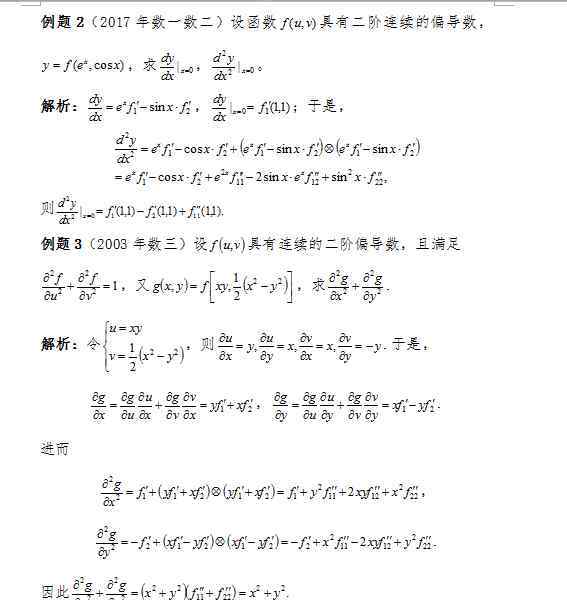 例题 2（2017 年数一数二）设函数 f(u,v) 具有二阶连续的偏导数，
y = f(e^x, cosx)，求 dy/dx |_{x=0}，d²y/dx² |_{x=0}。
解析：dy/dx = e^x f₁′ − sin x · f₂′，dy/dx |_{x=0} = f₁′(1,1)；于是，
d²y/dx² = e^x f₁′ − cos x · f₂′ + (e^x f₁′ − sin x · f₂′) ⊗ (e^x f₁′ − sin x · f₂′)
= e^x f₁′ − cos x · f₂′ + e^{2x} f₁₁″ − 2sin x · e^x f₁₂″ + sin² x · f₂₂″,
则 d²y/dx² |_{x=0} = f₁′(1,1) − f₂′(1,1) + f₁₁″(1,1).
例题 3（2003 年数三）设 f(u,v) 具有连续的二阶偏导数，且满足
∂²f/∂u² + ∂²f/∂v² = 1，又 g(x,y) = f[xy, 1/2 (x² − y²)]，求 ∂²g/∂x² + ∂²g/∂y².
解析：令 { u = xy, v = 1/2 (x² − y²)，则 ∂u/∂x = y, ∂u/∂y = x, ∂v/∂x = x, ∂v/∂y = −y. 于是，
∂g/∂x = ∂g/∂u ∂u/∂x + ∂g/∂v ∂v/∂x = yf₁′ + xf₂′，∂g/∂y = ∂g/∂u ∂u/∂y + ∂g/∂v ∂v/∂y = xf₁′ − yf₂′.
进而
∂²g/∂x² = f₂′ + (yf₁′ + xf₂′) ⊗ (yf₁′ + xf₂′) = f₂′ + y² f₁₁″ + 2xyf₁₂″ + x² f₂₂″，
∂²g/∂y² = −f₂′ + (xf₁′ − yf₂′) ⊗ (xf₁′ − yf₂′) = −f₂′ + x² f₁₁″ − 2xyf₁₂″ + y² f₂₂″.
因此 ∂²g/∂x² + ∂²g/∂y² = (x² + y²)(f₁₁″ + f₂₂″) = x² + y².